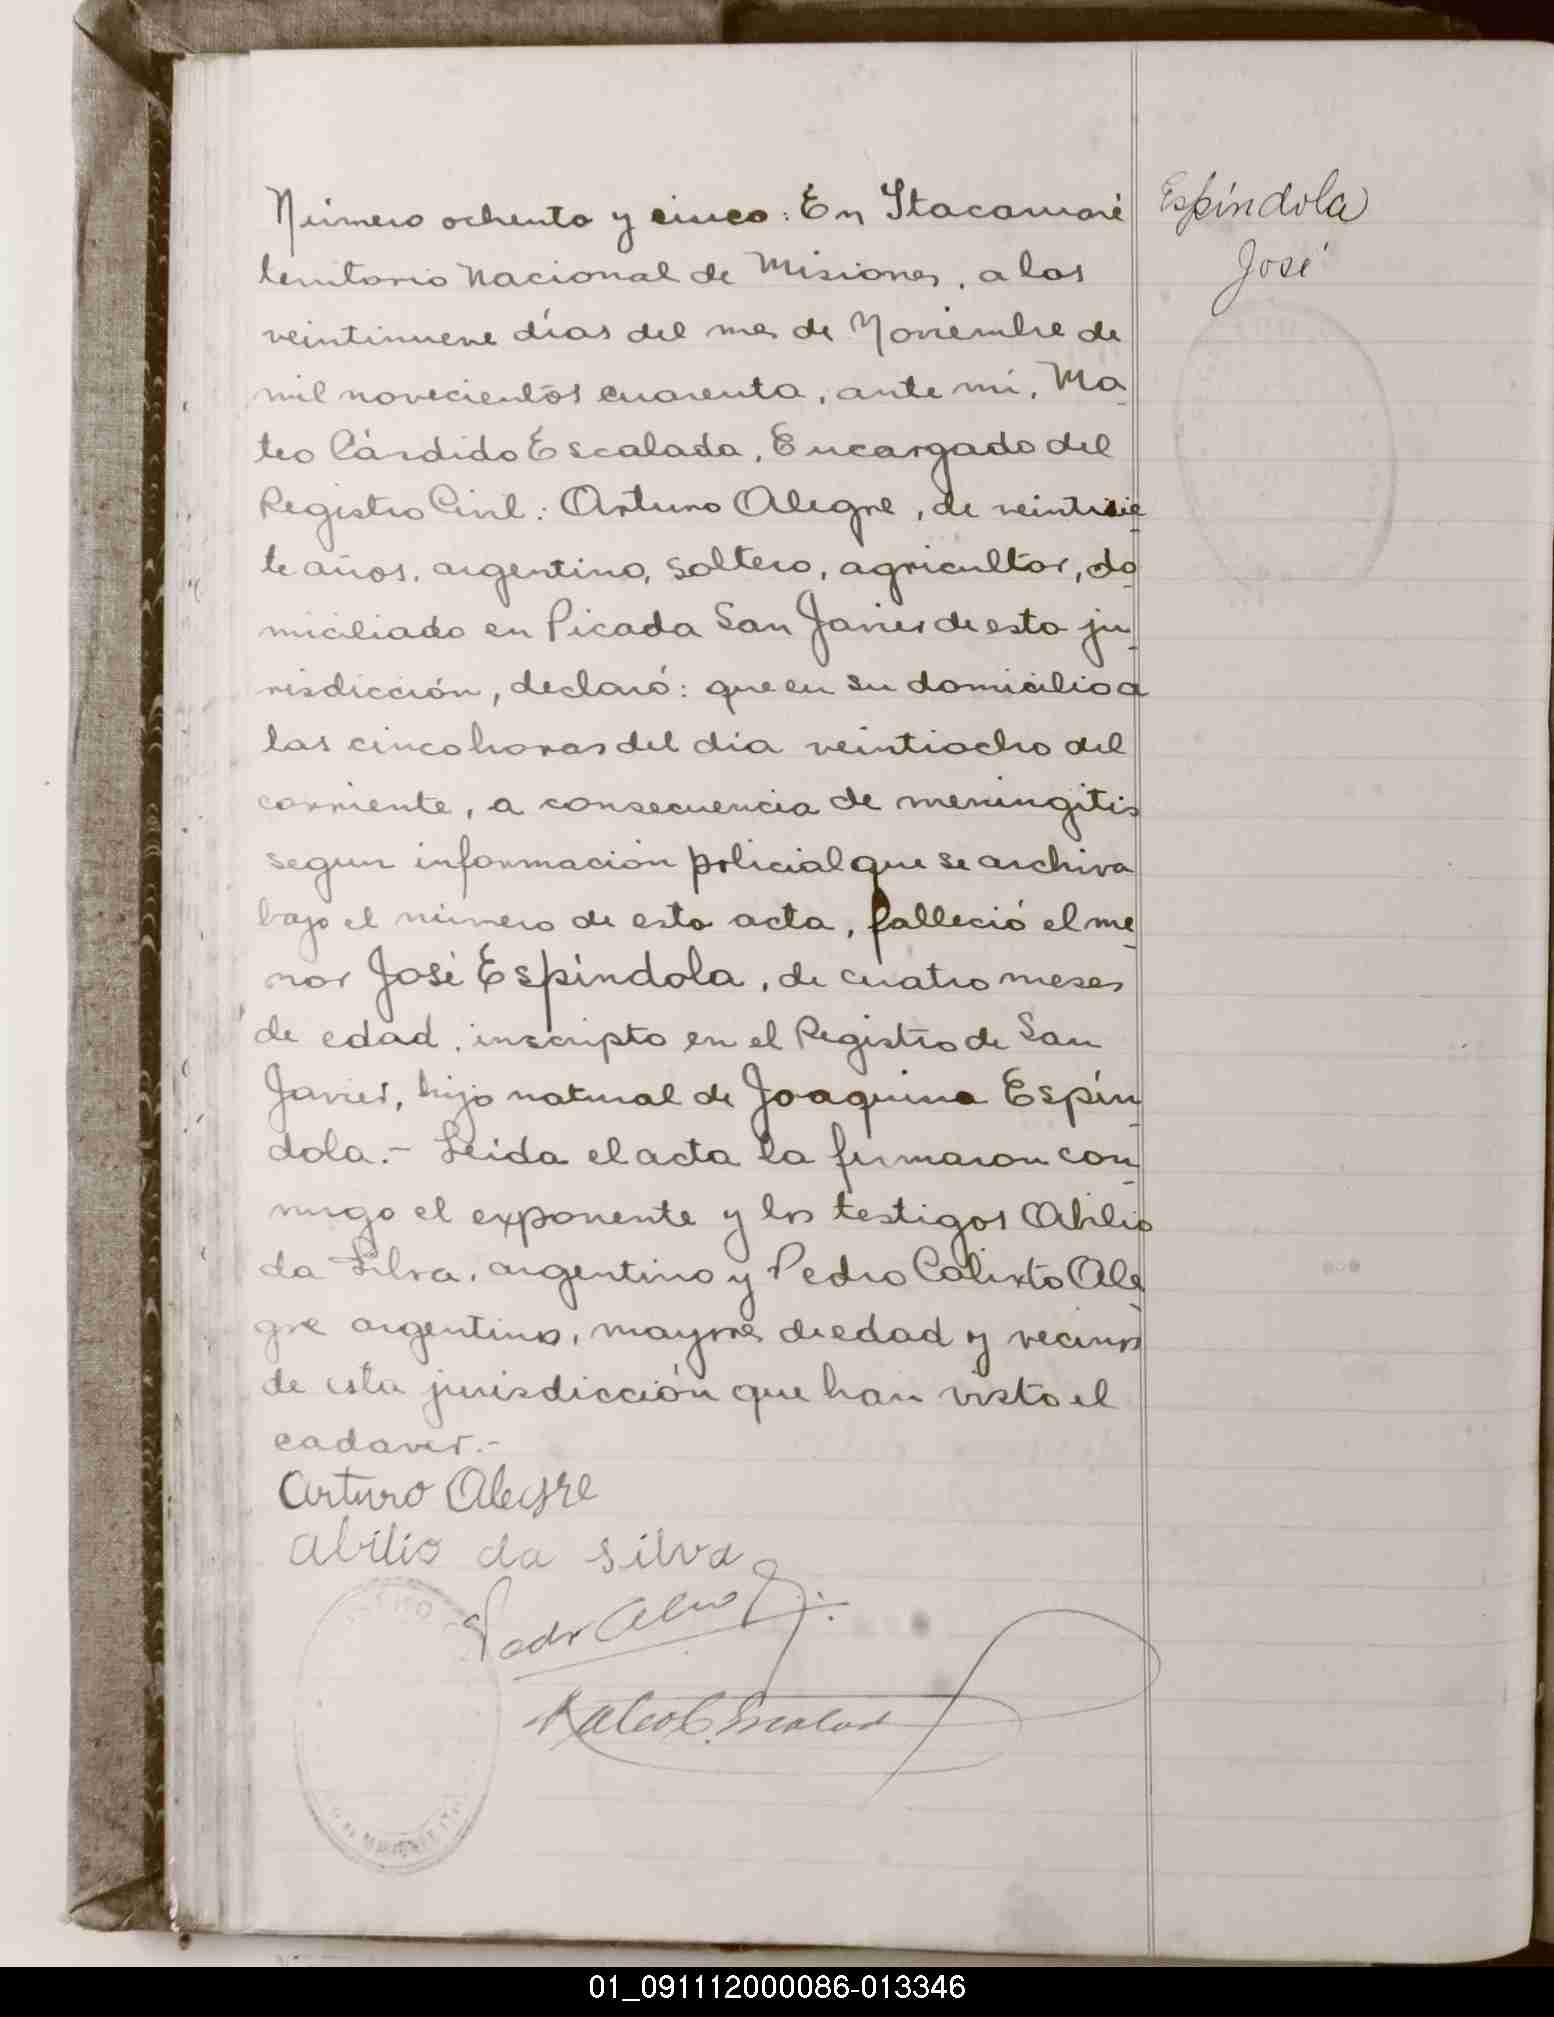 Número ochenta y cinco: En Itacaruaré
territorio Nacional de Misiones, a los
veintinueve días del mes de Noviembre de
mil novecientos cuarenta, ante mí, Ma-
teo Cándido Escalada, Encargado del
Registro Civil: Arturo Alegre, de veintisie-
te años, argentino, soltero, agricultor, do-
miciliado en Picada San Javier de esta ju-
risdicción, declaró: que en su domicilio a
las cinco horas del día veintiocho del
corriente, a consecuencia de meningitis
segun información policial que se archiva
bajo el número de esta acta, falleció el me-
nor José Espíndola, de cuatro meses
de edad, inscripto en el Registro de San
Javier, hijo natural de Joaquina Espín-
dola.- Leida el acta la firmaron con-
migo el exponente y los testigos Abilio
da Silva, argentino y Pedro Calixto Ale-
gre argentino, mayores de edad y vecinos
de esta jurisdicción que han visto el
cadaver.-
Espíndola
José
Arturo Alegre
Abilio da Silva
Mateo C. Escalada
01_091112000086-013346